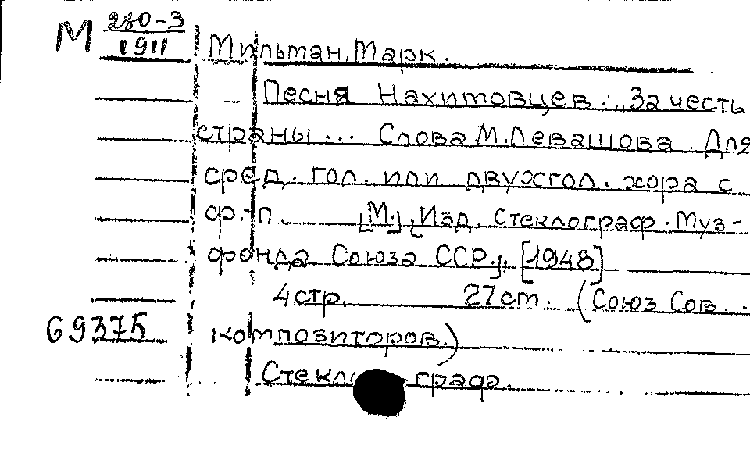 М 280-3
1911
Мильман, Марк.
Песня Нахимовцев: "За честь
страны... Слова М. Левашова. Для
сред. гол. или двухгол. хора с
ф.-п. [М.], [Изд. стеклограф. Муз-
фонда Союза ССР], [1948]
4 стр. 27 cm. (Союз Сов.
69375 композиторов.)
Стекл граф.